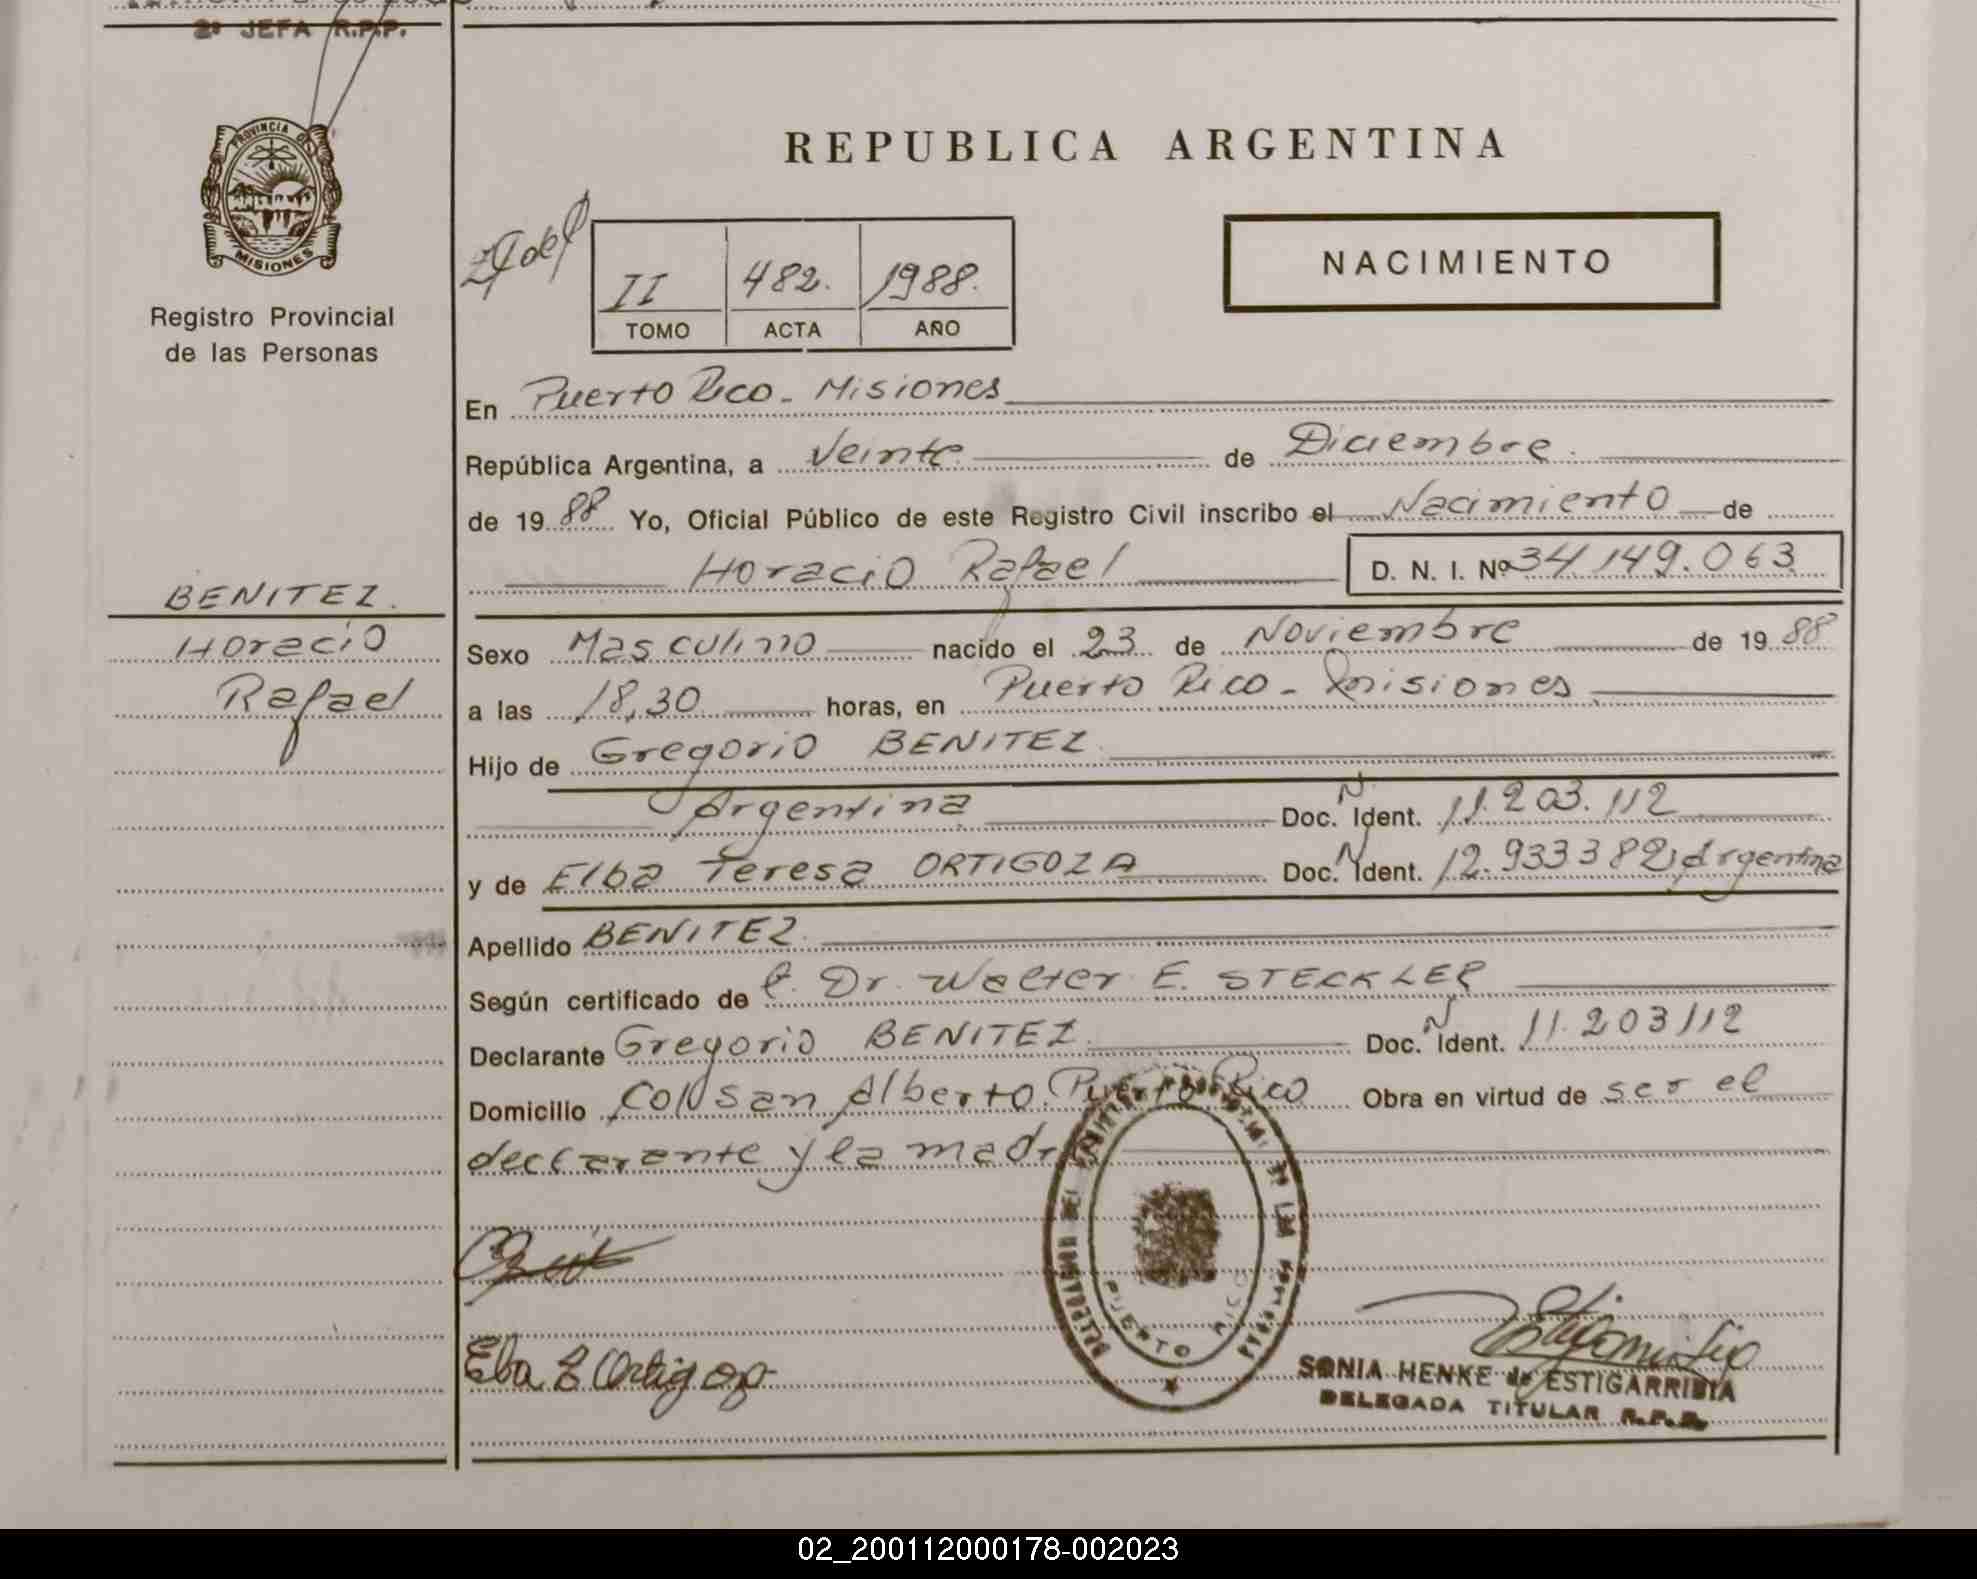 2º JEFA R.P.P.
PROVINCIA DE
MISIONES
Registro Provincial
de las Personas
BENITEZ.
Horacio
Rafael
REPUBLICA ARGENTINA
II 482. 1988.
TOMO ACTA AÑO
NACIMIENTO
En Puerto Rico - Misiones
República Argentina, a Veinte de Diciembre.
de 1988 Yo, Oficial Público de este Registro Civil inscribo el Nacimiento de
Horacio Rafael D. N. I. Nº 34.149.063
Sexo Masculino nacido el 23 de Noviembre de 1988
a las 18,30 horas, en Puerto Rico - Misiones
Hijo de Gregorio BENITEZ.
Argentina Doc. N. Ident. 11.203.112
y de Elba Teresa ORTIGOZA Doc. N Ident. 12.933382, Argentina
Apellido BENITEZ.
Según certificado de Dr. Walter E. STECKLER
Declarante Gregorio BENITEZ. Doc. N Ident. 11.203112
Domicilio Col San Alberto. Puerto Rico Obra en virtud de ser el
declarante y la madre
PUERTO RICO
Elba E Ortigoza
SONIA HENKE de ESTIGARRIBIA
DELEGADA TITULAR R.P.P.
02_200112000178-002023